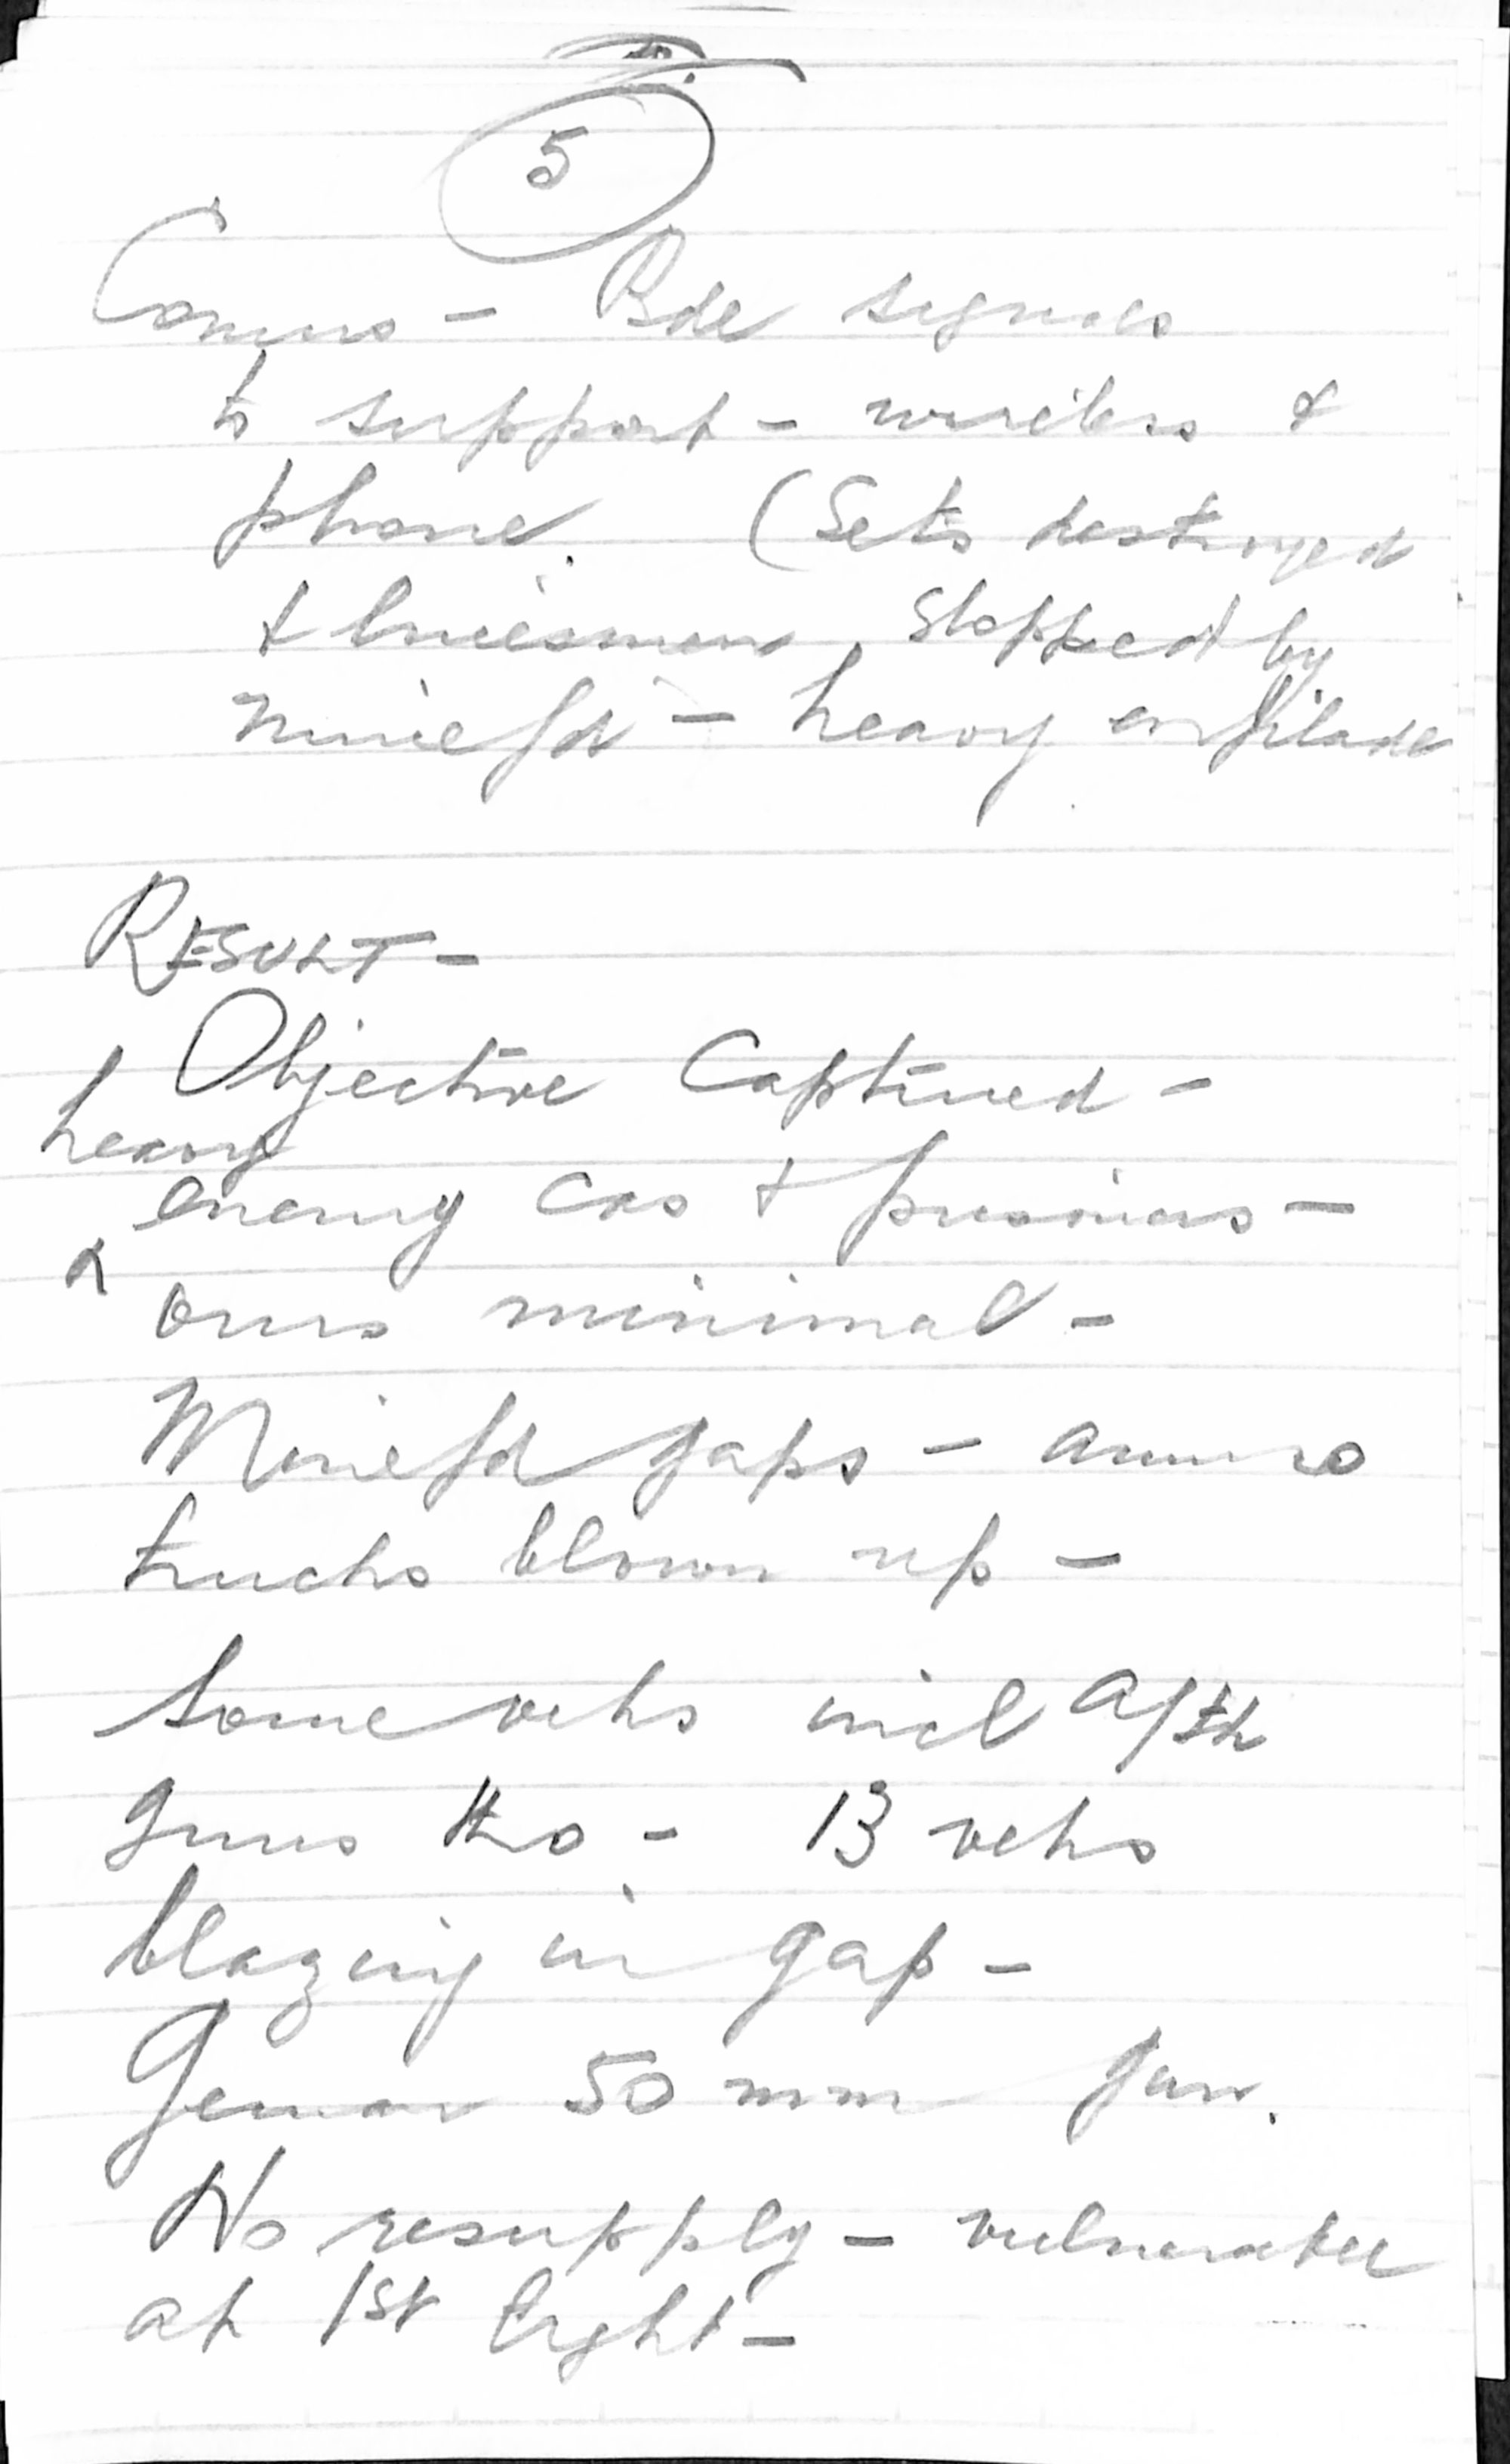 5
Comms - Bde signals
to support - wireless &
phone. (Sets destroyed
& linesmen stopped by
minefd - heavy enfilade
RESULT -
Objective Captured -
heavy
enemy cas & prisoners -
ours minimal -
Minefd gaps - ammo
trucks blown up -
Some vehs incl A/tk
guns ko - 13 vehs
blazing in gap -
German 50 mm gun.
No resupply - vulnerable
at 1st light -